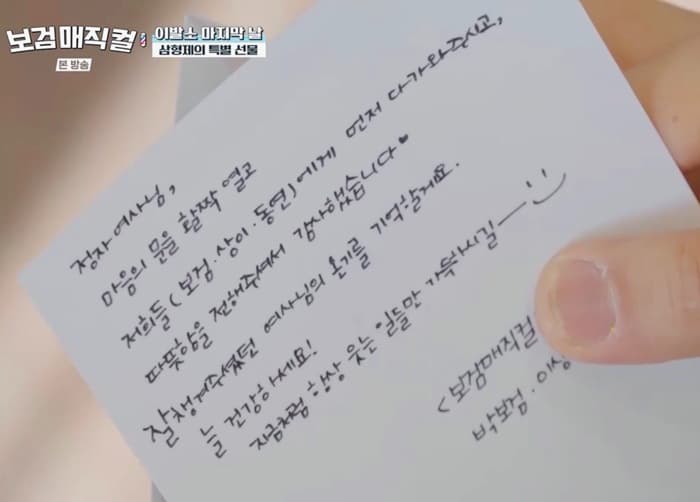 보검매직컬
본 방송
이발소 마지막 날
삼형제의 특별 선물
정자 여사님,
마음의 문을 활짝 열고
저희들(보검·상이·동연)에게 먼저 다가와주시고,
따뜻함을 전해주셔서 감사했습니다♥
잘 챙겨주셨던 여사님의 온기를 기억할게요.
늘 건강하세요!
지금처럼 항상 웃는 일들만 가득하시길
<보검매직컬
박보검·이상